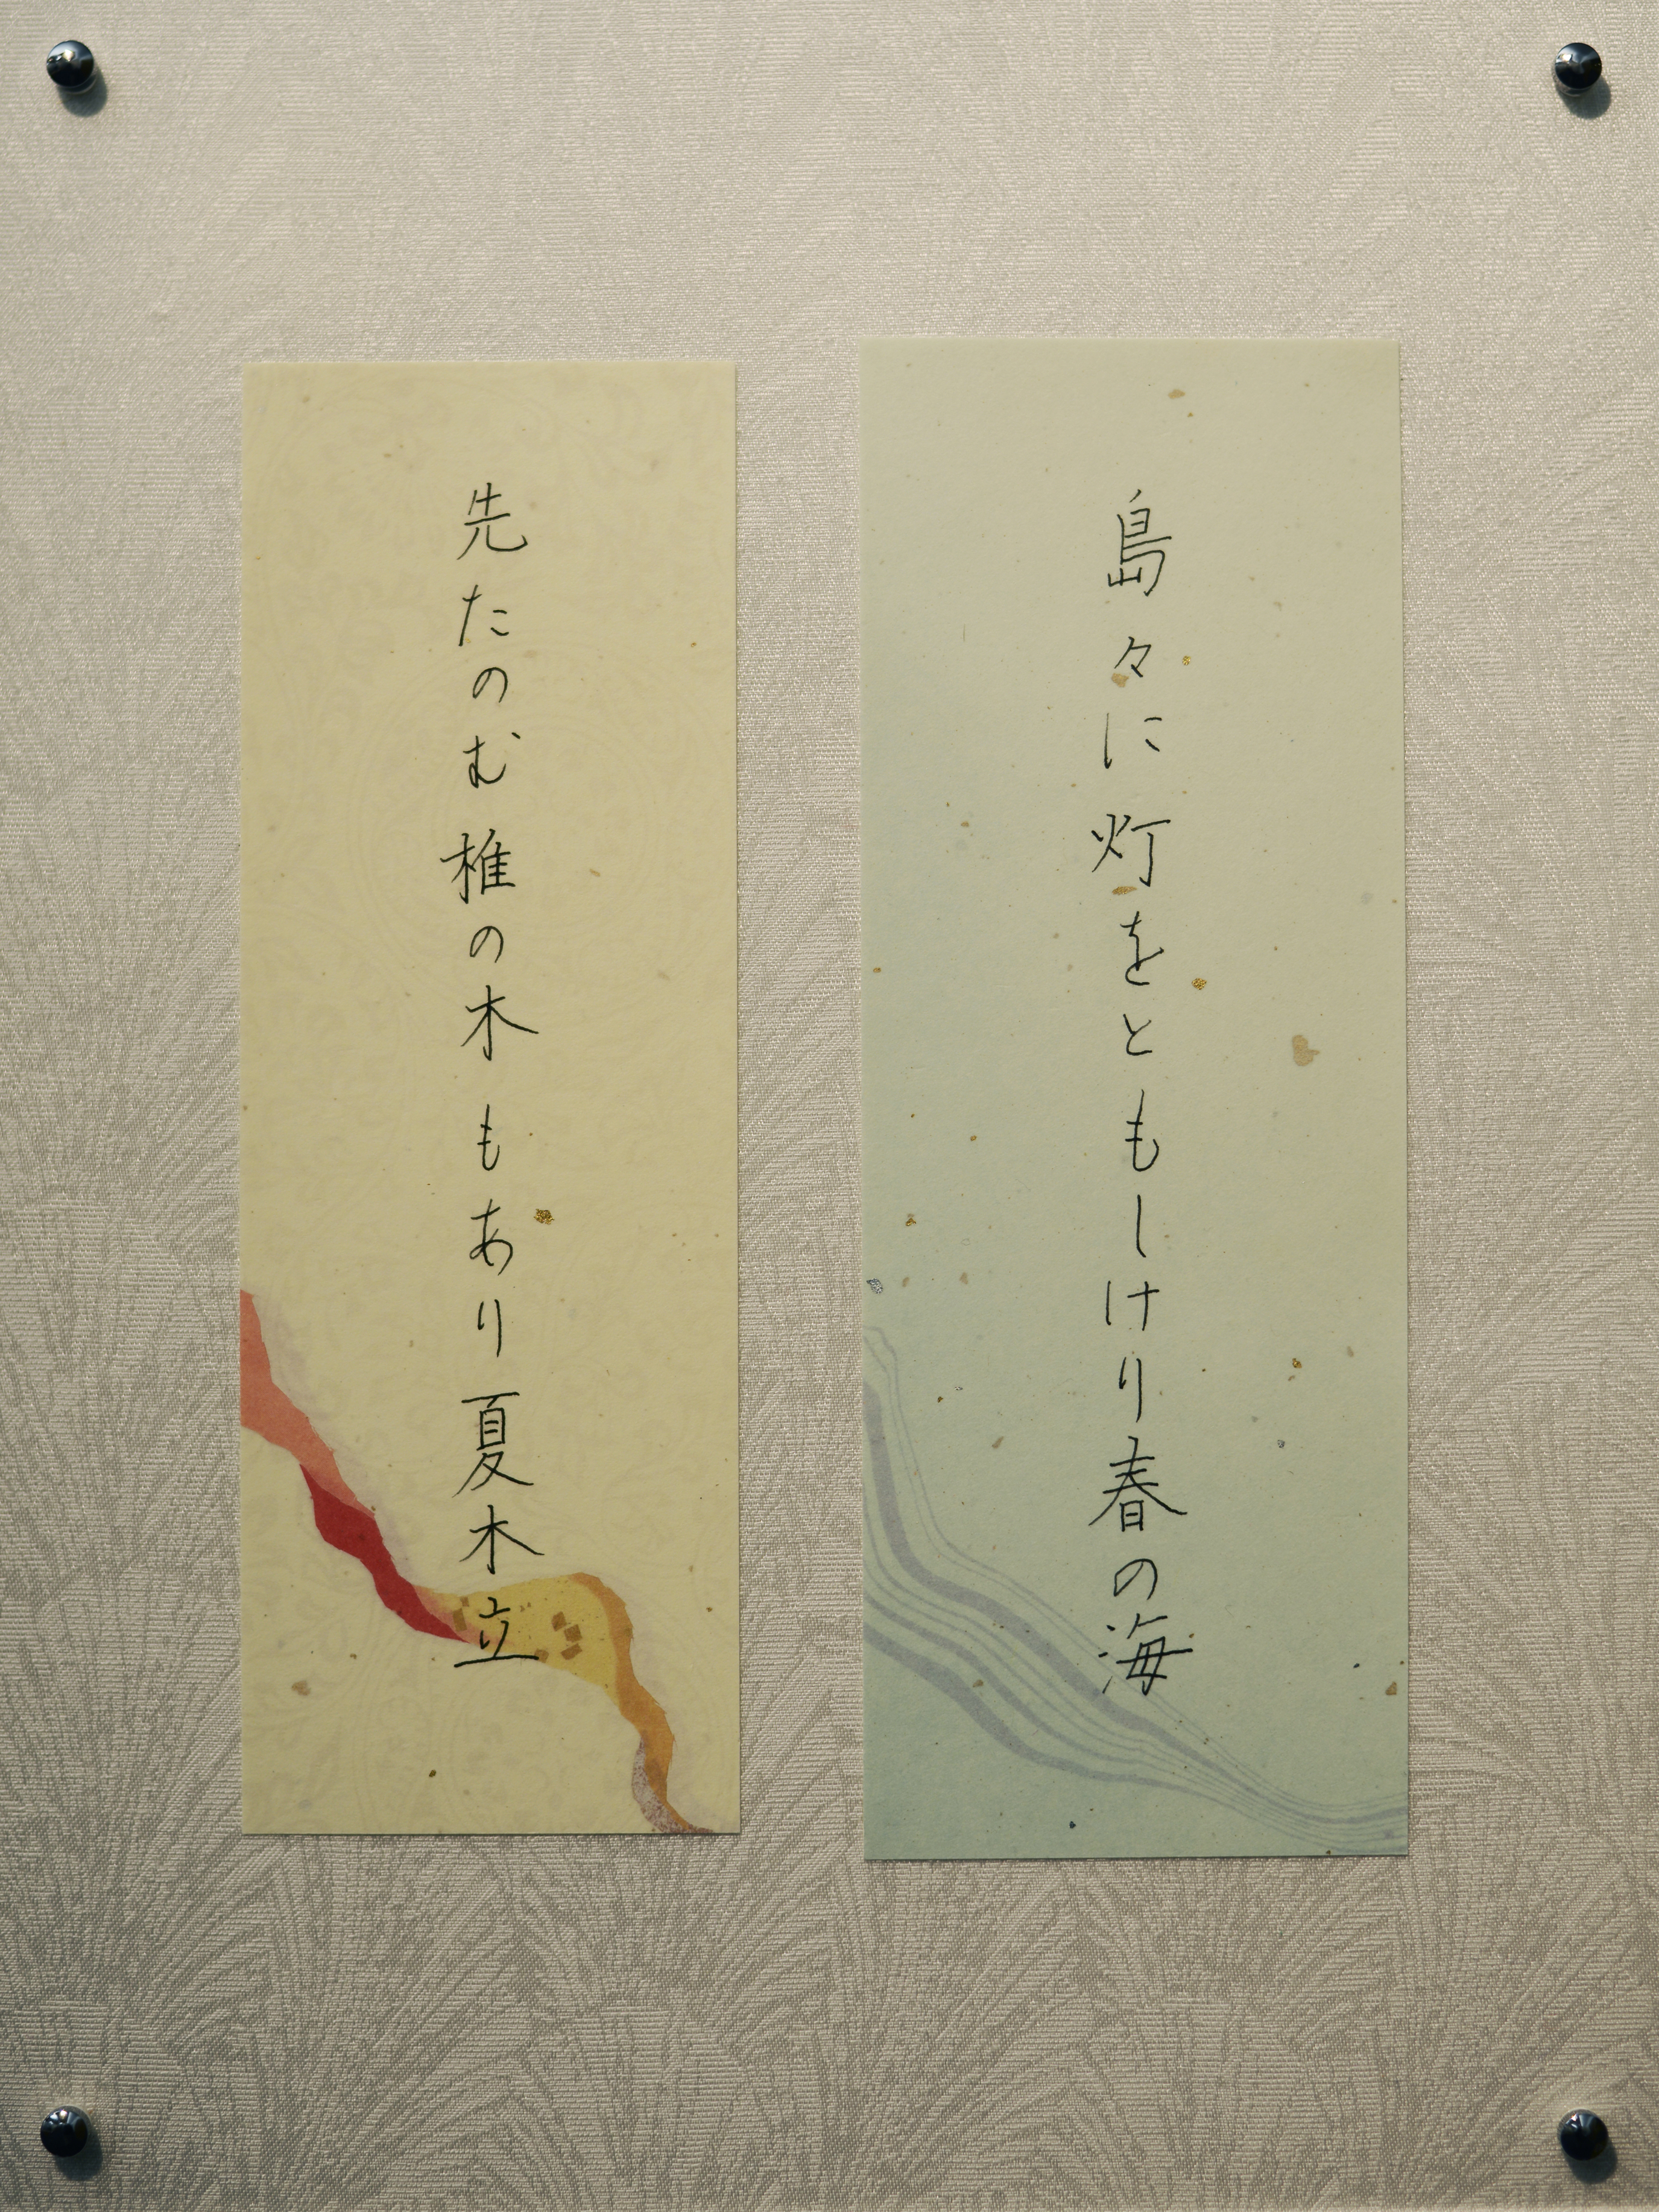 島々に灯をともしけり春の海
先たのむ椎の木もあり夏木立